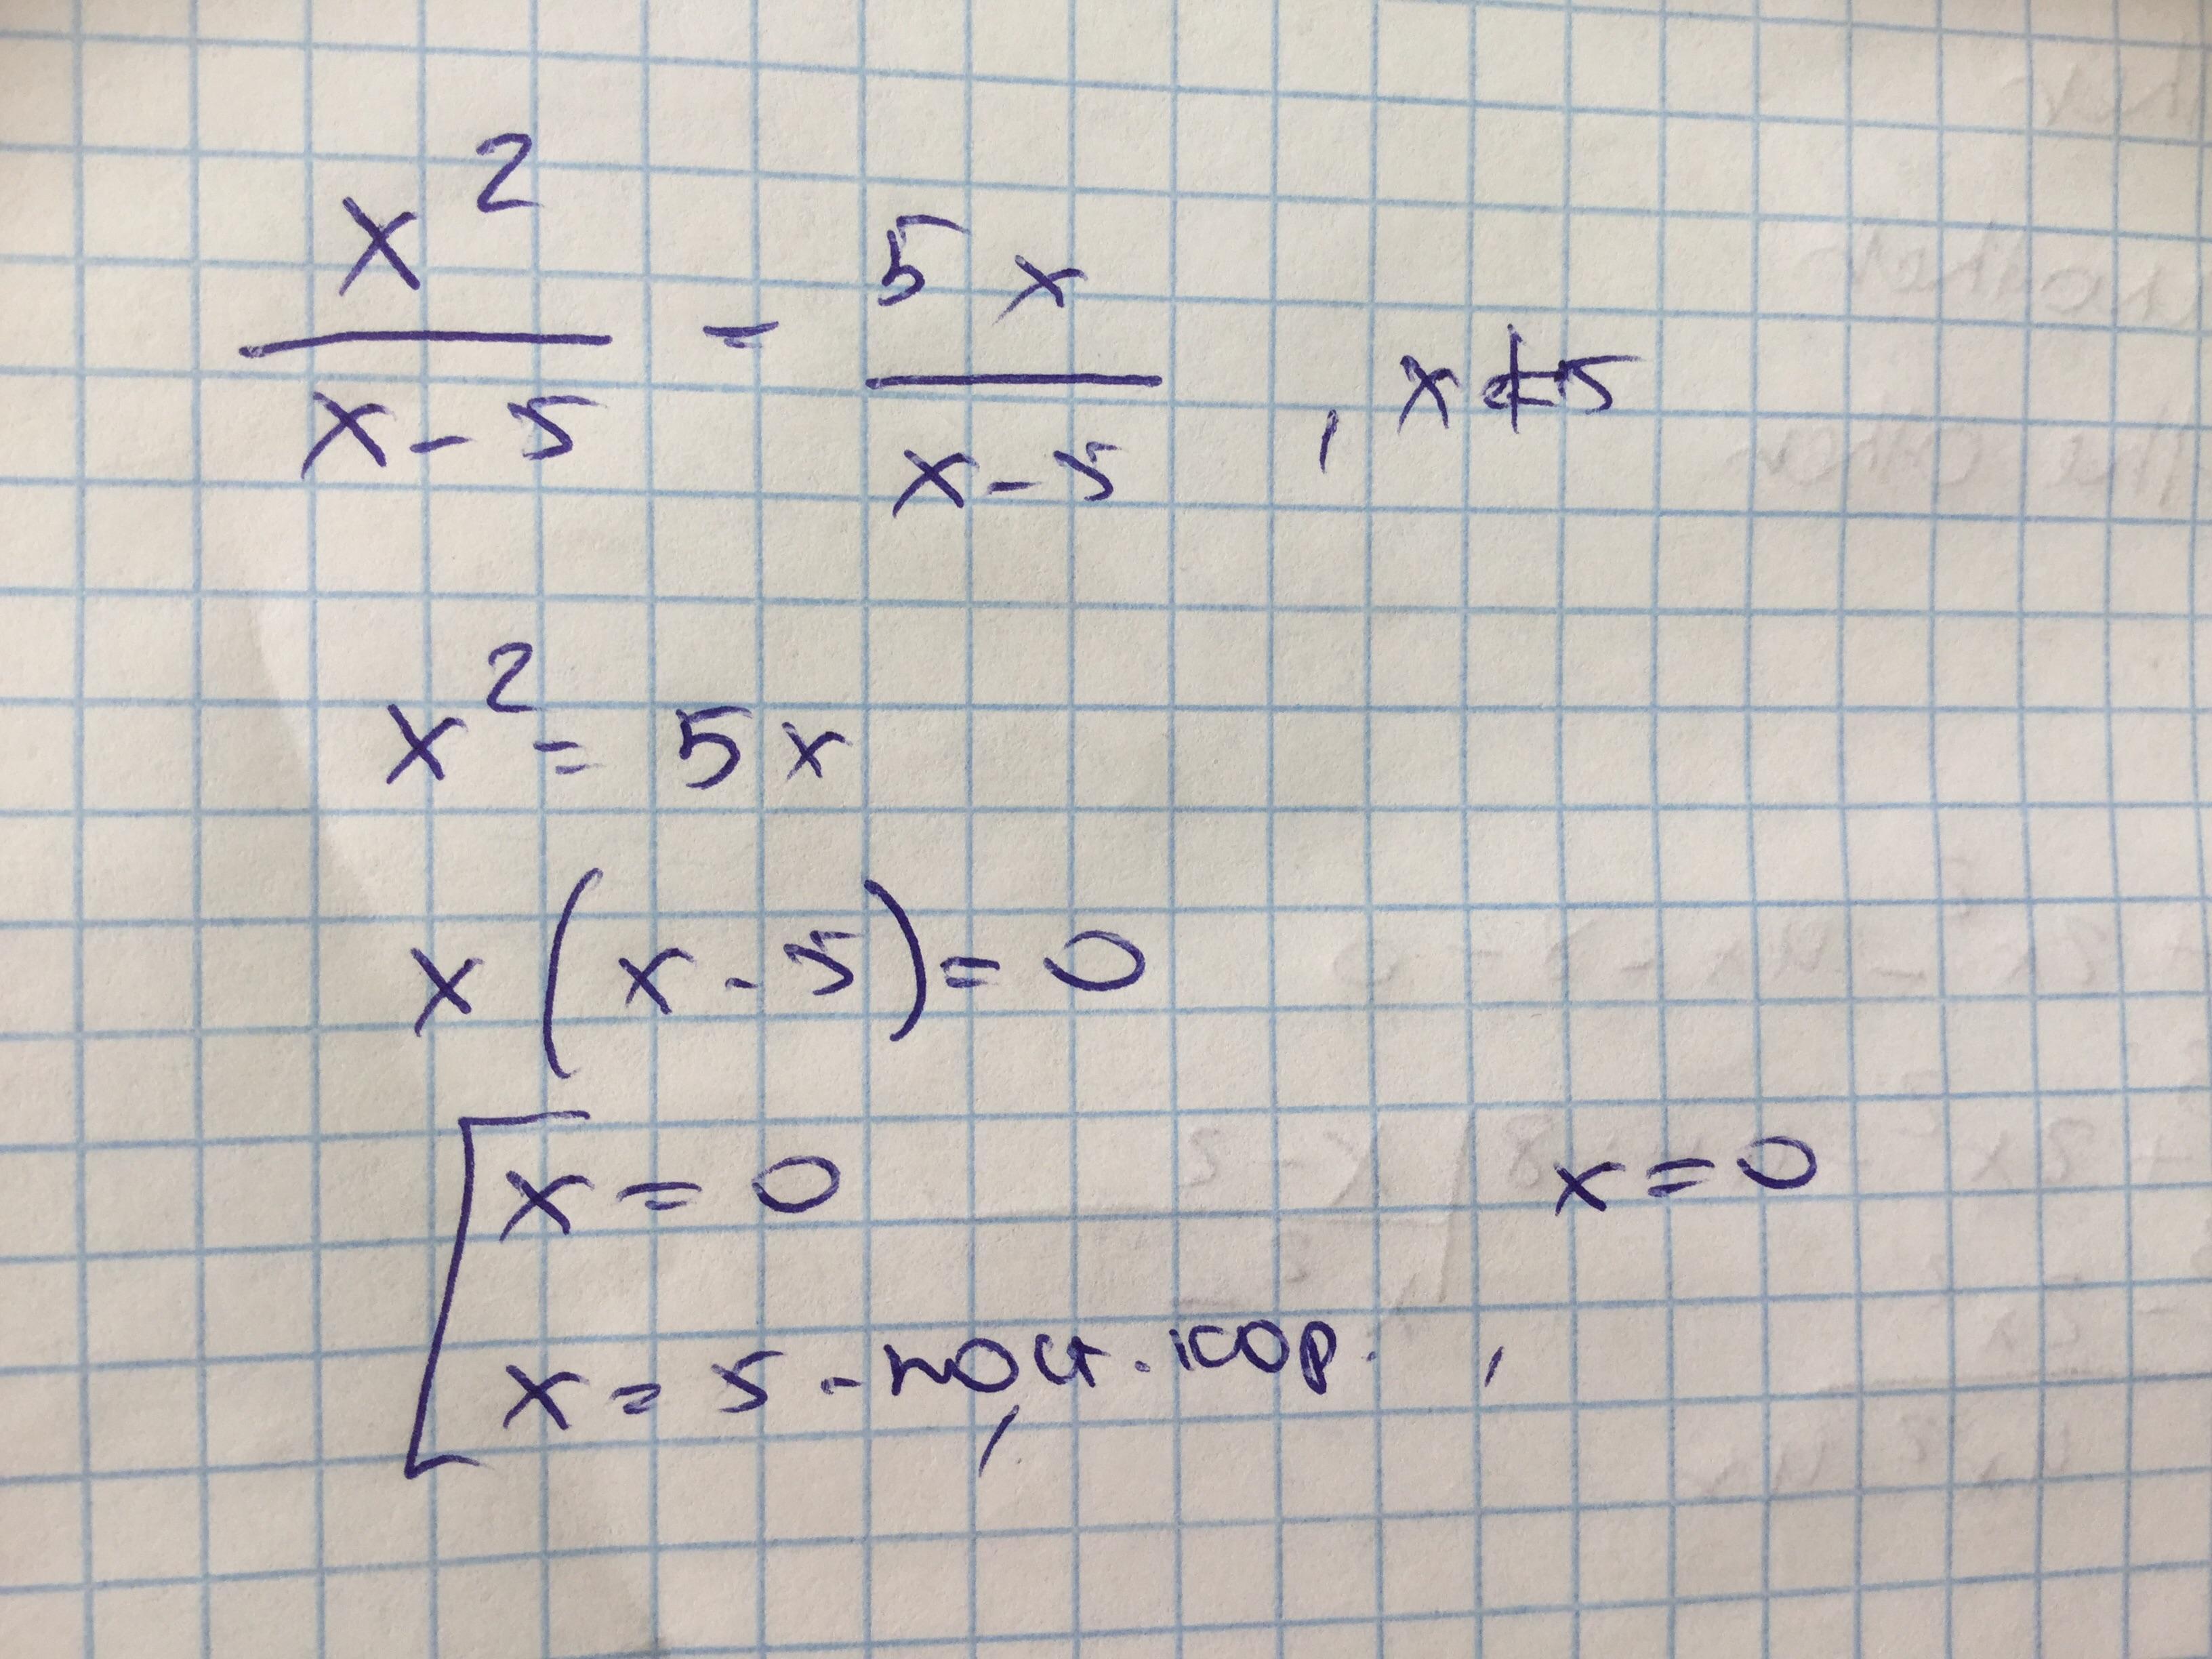 x² / (x - 5) = 5x / (x - 5) , x ≠ 5
x² = 5x
x (x - 5) = 0
[ x = 0
x = 5 - пост. кор. , x = 0